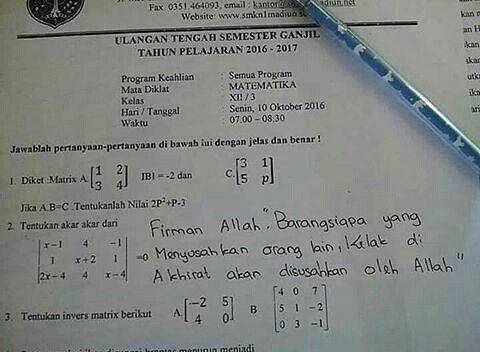 Fax 0351 464093, email : kantor@
Website: www.smkn1madiun
ULANGAN TENGAH SEMESTER GANJIL
TAHUN PELAJARAN 2016 - 2017
Program Keahlian : Semua Program
Mata Diklat : MATEMATIKA
Kelas : XII / 3
Hari / Tanggal : Senin, 10 Oktober 2016
Waktu : 07.00 – 08.30
Jawablah pertanyaan-pertanyaan di bawah ini dengan jelas dan benar !
1. Diket :Matrix A [1 2
3 4] IBI = -2 dan C. [3 1
5 p]
Jika A.B=C .Tentukanlah Nilai 2P²+P-3
2. Tentukan akar akar dari
|x-1 4 -1|
|1 x+2 1| =0
|2x-4 4 x-4|
Firman Allah "Barangsiapa yang
Menyusahkan orang lain, kelak di
Akhirat akan disusahkan oleh Allah"
3. Tentukan invers matrix berikut A. [-2 5
4 0] B [4 0 7
5 1 -2
0 3 -1]
menurun menjadi